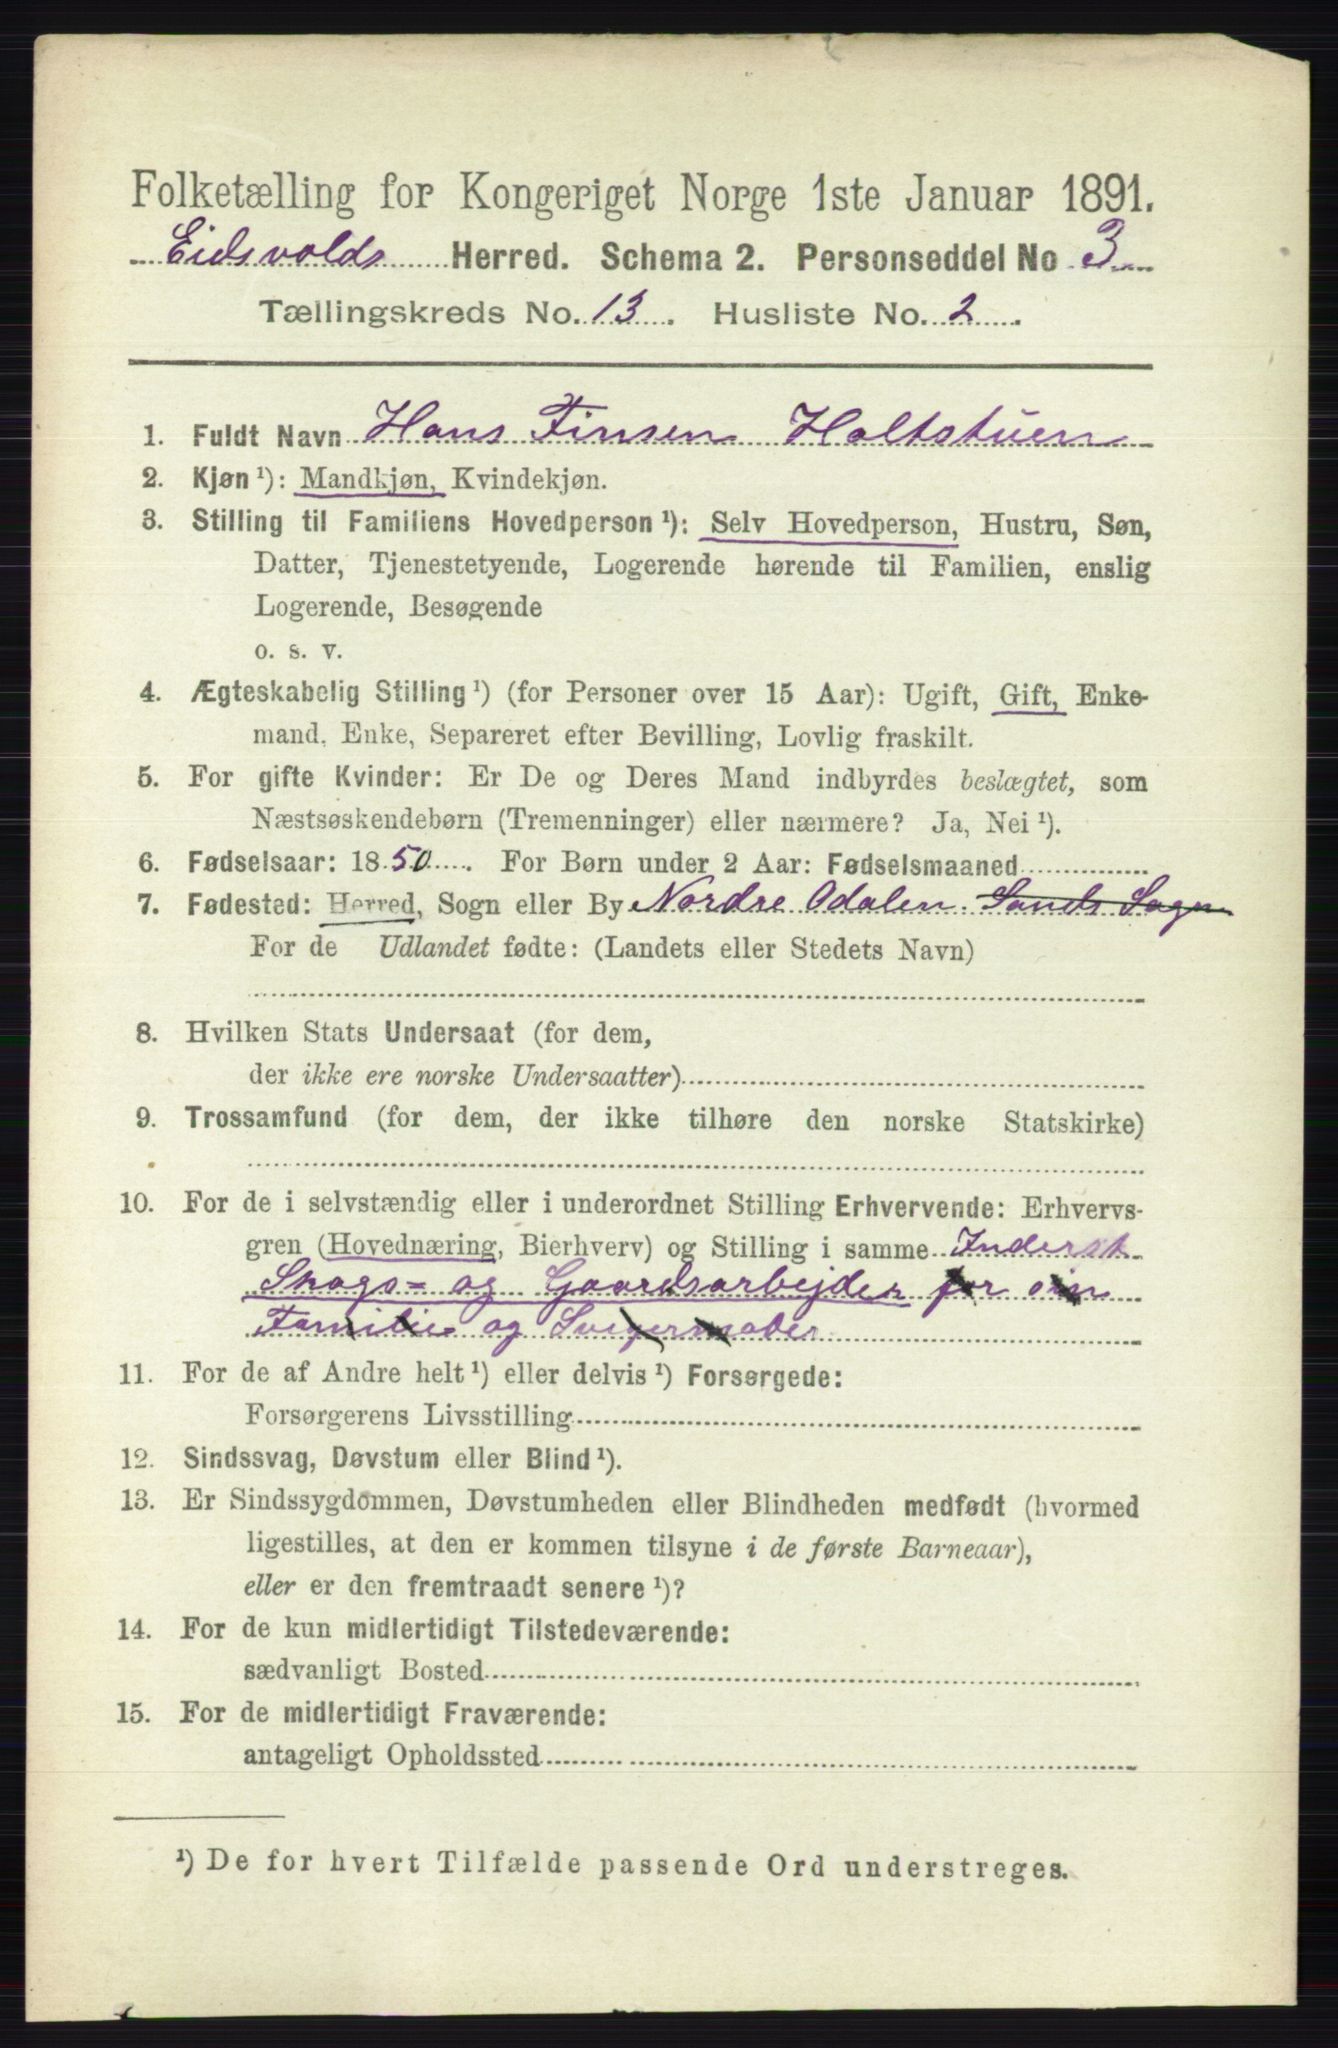 Folketælling for Kongeriget Norge 1ste Januar 1891.
Eidsvolds Herred. Schema 2. Personseddel No 3
Tællingskreds No. 13. Husliste No. 2.
1. Fuldt Navn Hans Finsen Holtstuen
2. Kjøn ¹): Mandkjøn, Kvindekjøn.
3. Stilling til Familiens Hovedperson ¹): Selv Hovedperson, Hustru, Søn,
Datter, Tjenestetyende, Logerende hørende til Familien, enslig
Logerende, Besøgende
o. s. v.
4. Ægteskabelig Stilling ¹) (for Personer over 15 Aar): Ugift, Gift, Enke-
mand, Enke, Separeret efter Bevilling, Lovlig fraskilt.
5. For gifte Kvinder: Er De og Deres Mand indbyrdes beslægtet, som
Næstsøskendebørn (Tremenninger) eller nærmere? Ja, Nei ¹).
6. Fødselsaar: 1850. For Børn under 2 Aar: Fødselsmaaned
7. Fødested: Herred, Sogn eller By Nordre Odalen Sands Sogn
For de Udlandet fødte: (Landets eller Stedets Navn)
8. Hvilken Stats Undersaat (for dem,
der ikke ere norske Undersaatter)
9. Trossamfund (for dem, der ikke tilhøre den norske Statskirke)
10. For de i selvstændig eller i underordnet Stilling Erhvervende: Erhvervs-
gren (Hovednæring, Bierhverv) og Stilling i samme Inderst
Skogs- og Gaardsarbejder for sin
Familie og Svigermoder
11. For de af Andre helt ¹) eller delvis ¹) Forsørgede:
Forsørgerens Livsstilling
12. Sindssvag, Døvstum eller Blind ¹).
13. Er Sindssygdommen, Døvstumheden eller Blindheden medfødt (hvormed
ligestilles, at den er kommen tilsyne i de første Barneaar),
eller er den fremtraadt senere ¹)?
14. For de kun midlertidigt Tilstedeværende:
sædvanligt Bosted
15. For de midlertidigt Fraværende:
antageligt Opholdssted
¹) De for hvert Tilfælde passende Ord understreges.